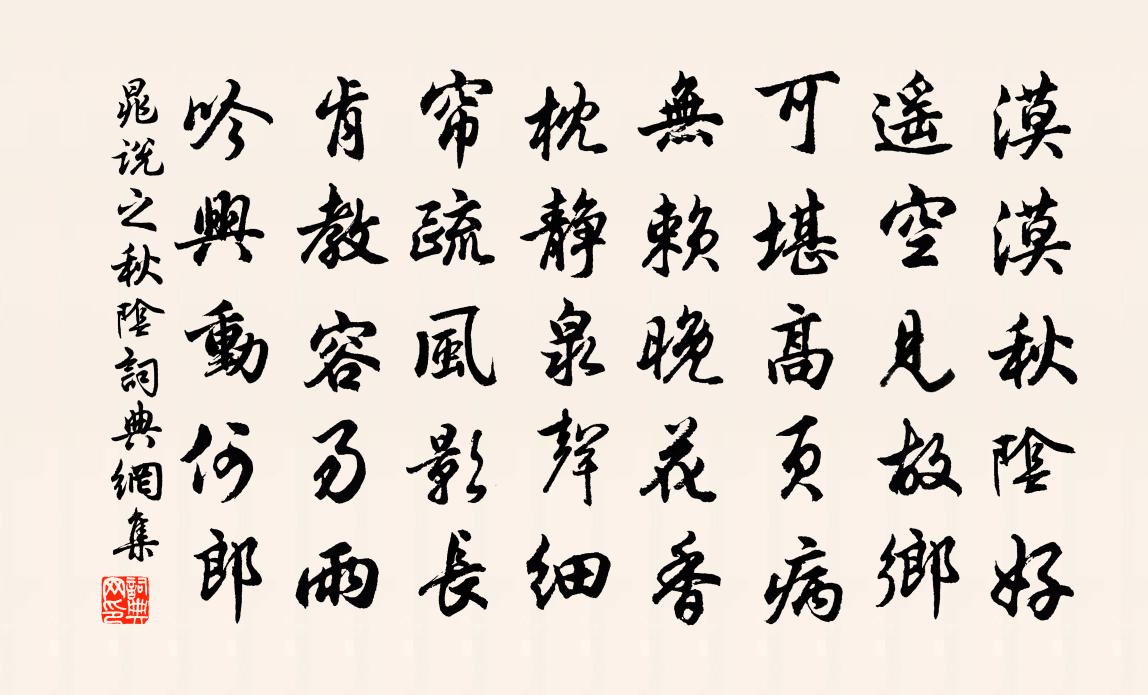 漠漠秋陰好
遥空見故鄉
可堪高頁病
無賴晚花香
枕静泉聲細
帘疏風影長
肯教容易雨
吟興動何郎
晁説之秋陰詞典網集
詞典网印